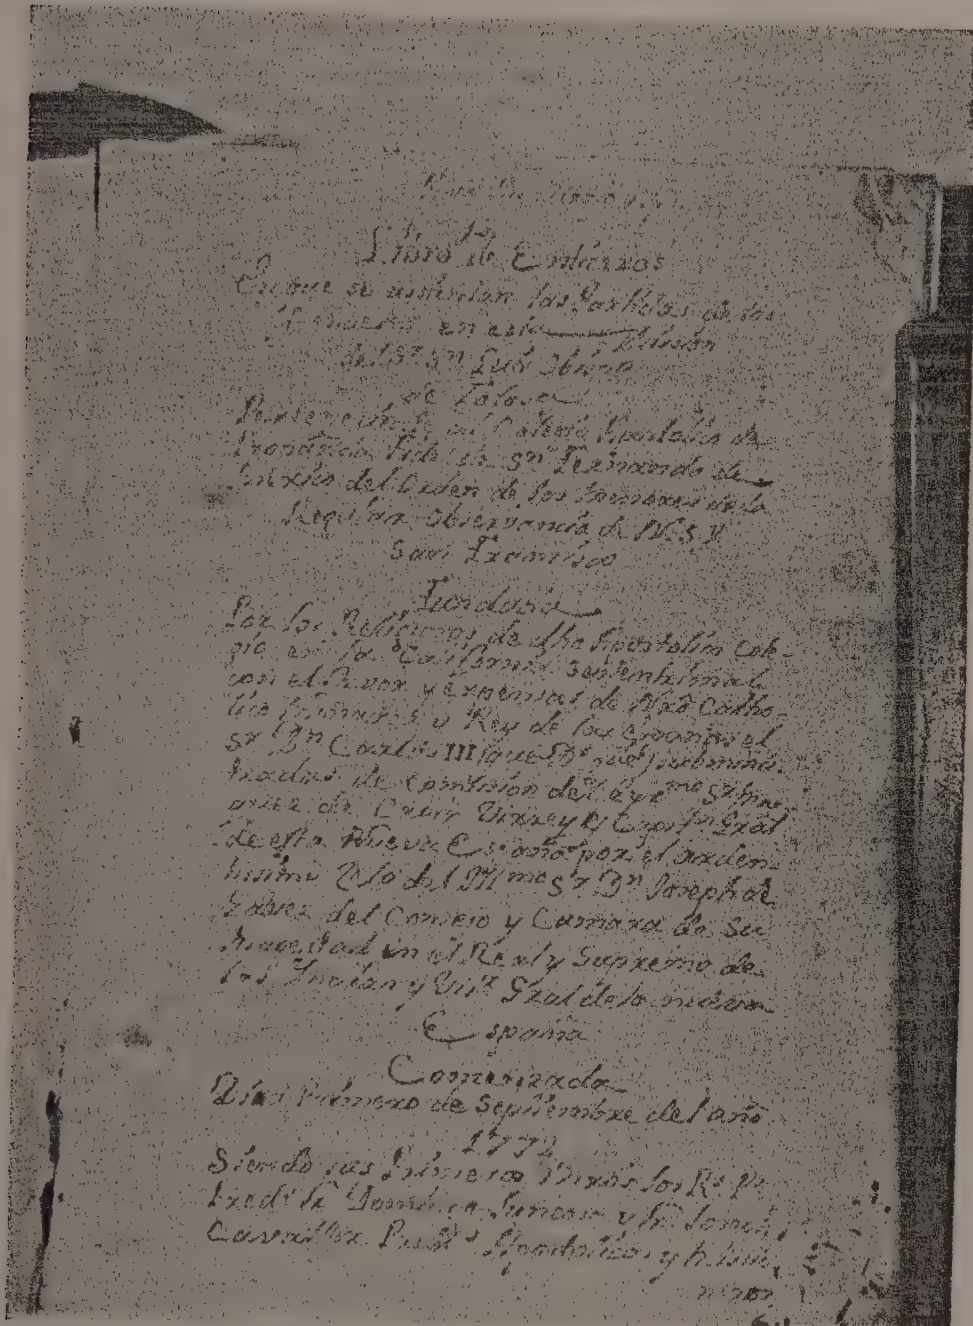 Libro de Entierros
En que se asientan las Partidas de los
en esta Mision
del Sr. Sn. Luis Obispo
de Tolosa
Perteneciente al Colegio Apostolico de
Propaganda Fide de Sn. Fernando de
Mexico del Orden de los Menores de la
Regular Observancia de N. S. P.
San Francisco
Fundada
Por los Religiosos de dho Apostolico Cole-
gio en la California Septentrional
con el favor y expensas de Nro Catho-
lico Monarca y Rey de las Españas el
Sr. Dn. Carlos III (que Ds. gue) submini-
tradas de comision del Exmo Sr.
de Croix Virrey y Capitn Gral
de esta Nueva España por el arden-
tisimo Zelo del Illmo Sr. Dn. Joseph de
Galvez del Consejo y Camara de Su
Magestad en el Real y Supremo de
las Indias y Visr. Gral de la nueva
España
Comenzada
Dia Primero de Septiembre del año
1772
Siendo sus Primeros Minros los Rs. Ps.
Preds. Fr. Domingo Juncosa y Fr. Joseph
Cavaller Preds. Apostolicos y h